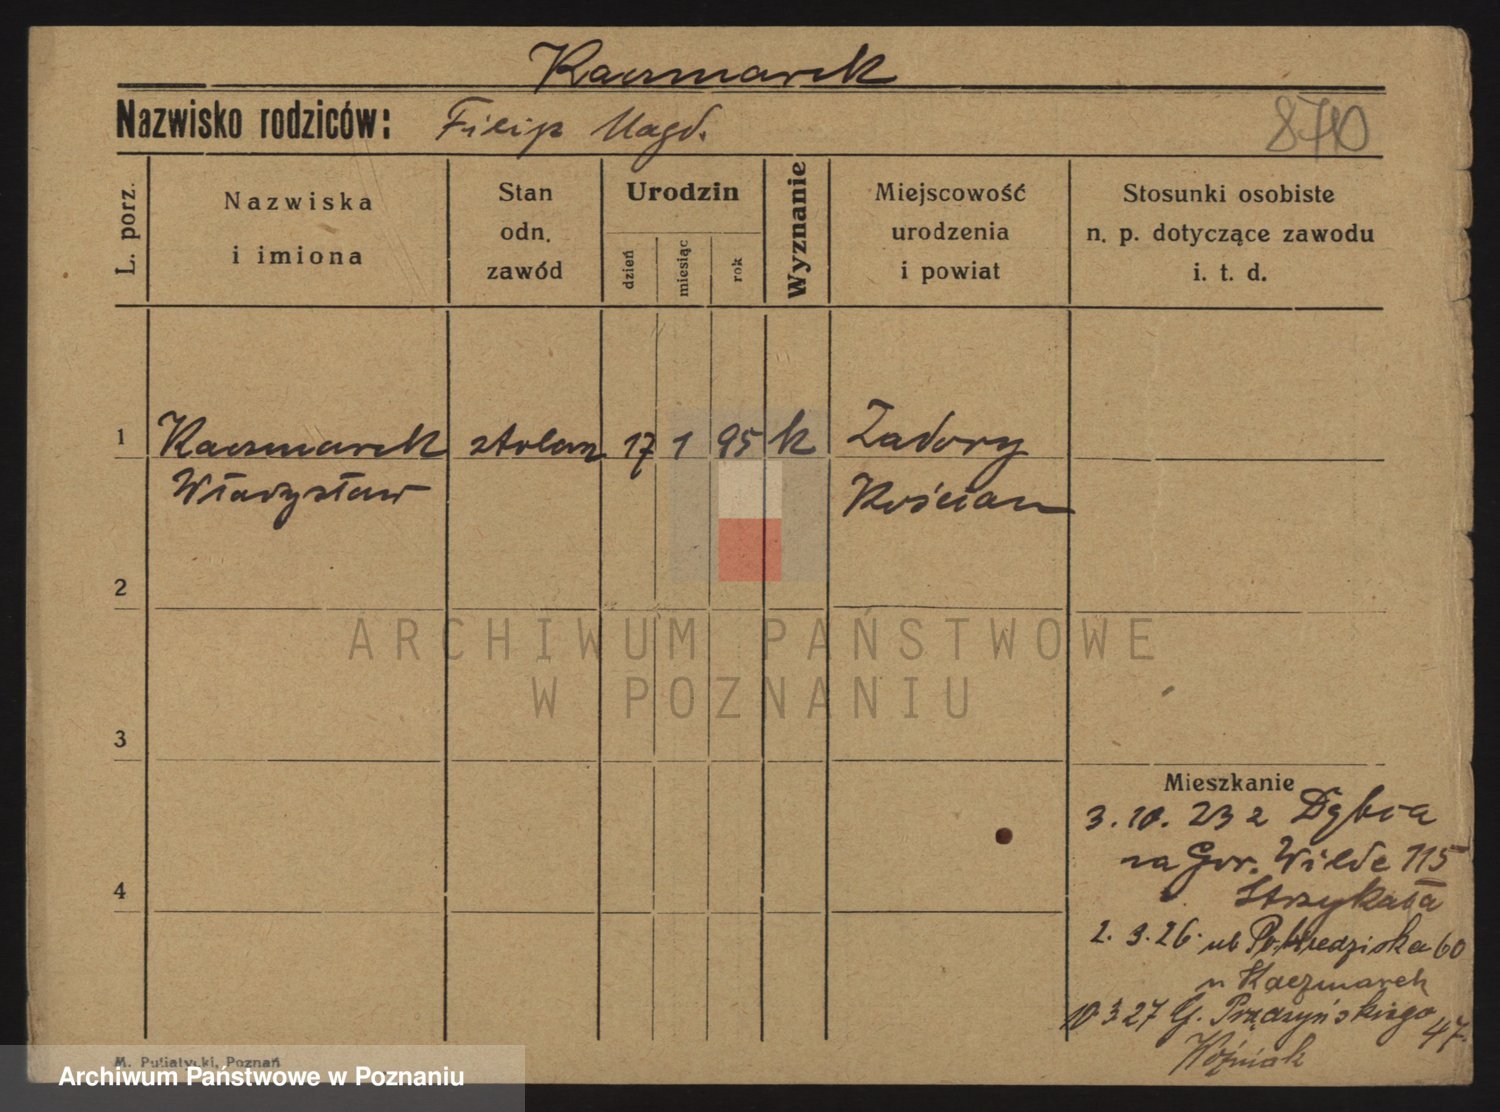 Kaczmarek
Nazwisko rodziców: Filip Magd.
8710
L. porz.
Nazwiska
i imiona
Stan
odn.
zawód
Urodzin
dzień
miesiąc
rok
Wyznanie
Miejscowość
urodzenia
i powiat
Stosunki osobiste
n. p. dotyczące zawodu
i. t. d.
1 Kaczmarek stolarz 17 1 95 k Zadory
Władysław Kościan
2
ARCHIWUM PAŃSTWOWE
W POZNANIU
3
Mieszkanie
3. 10. 23 z Dębca
na Gór. Wilde 115
Strzykała
4
2. 3. 26. ul. 60
u Kaczmarek
10 3 27 G. Prądzyńskiego 47.
Woźniak
M. Putiatycki, Poznań
Archiwum Państwowe w Poznaniu